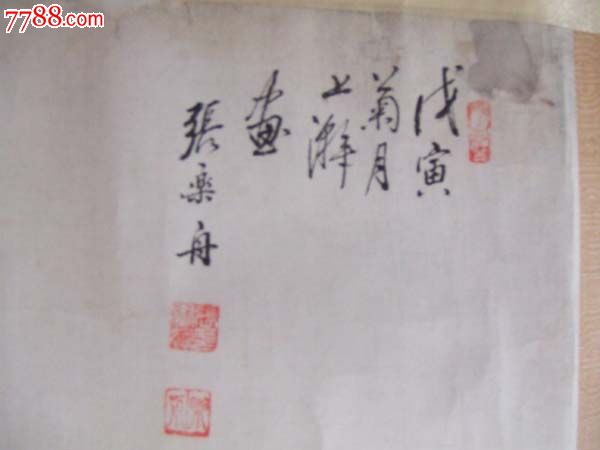 7788.com
戊寅
菊月
上澣
畫
張乐舟